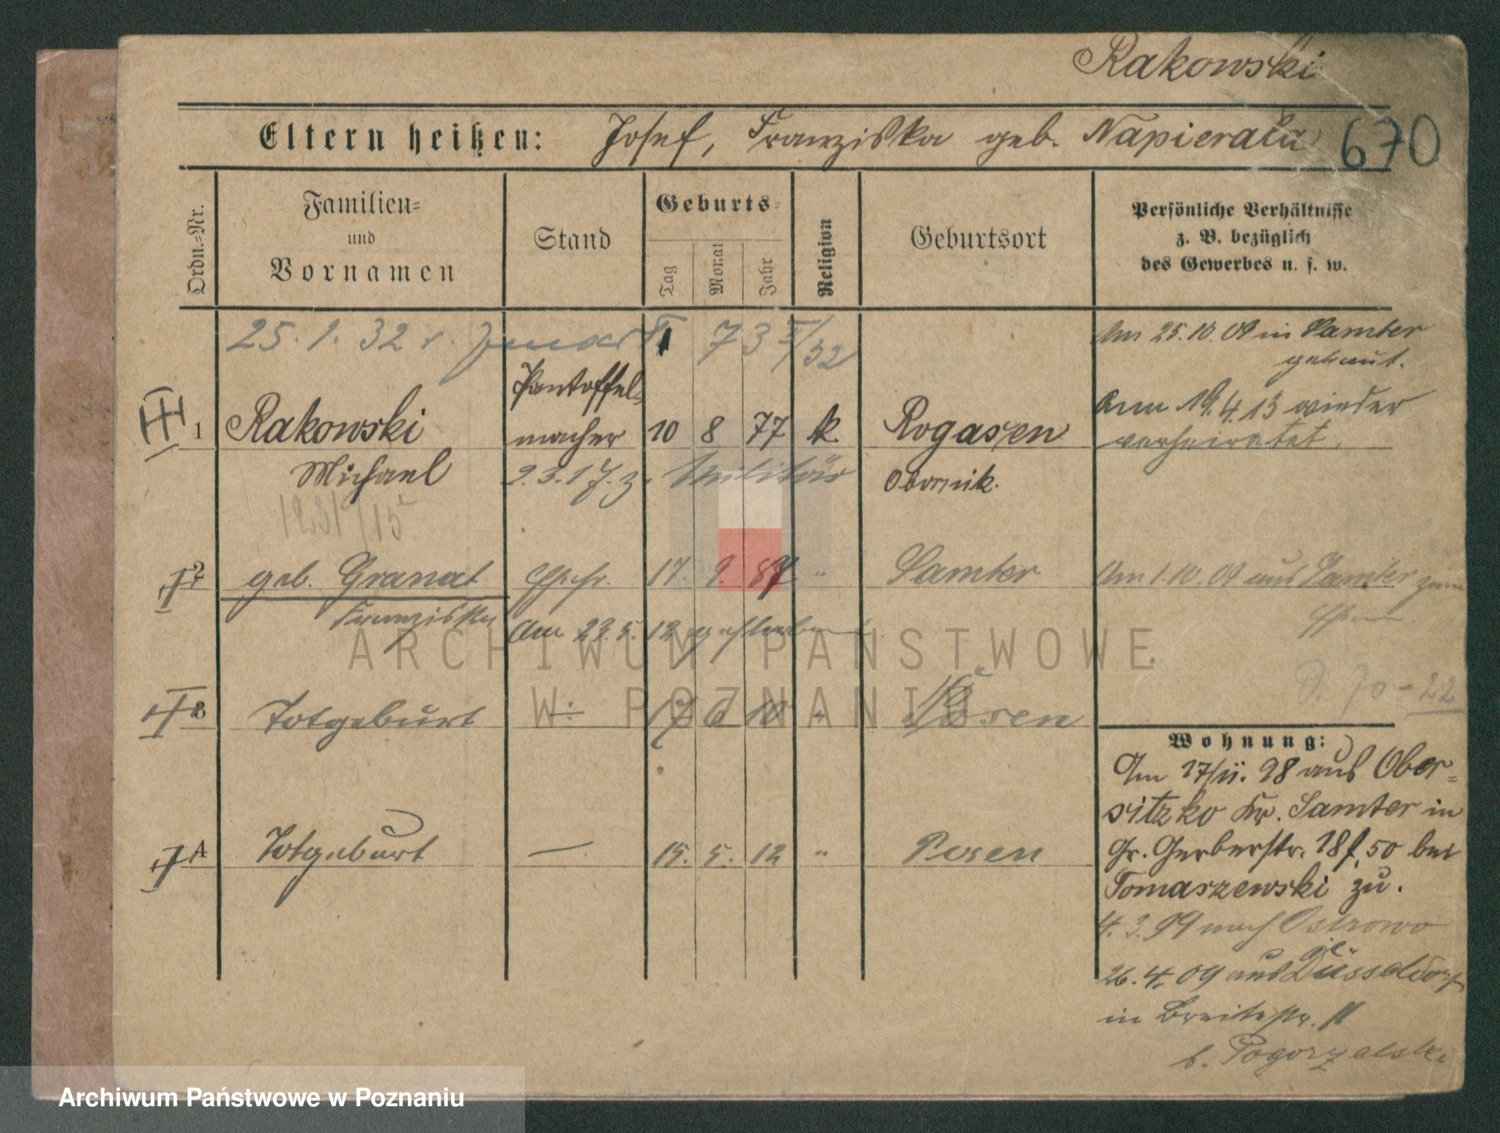 Rakowski
Eltern heißen: Josef, Franziska geb. Napierała
670
Ordn.-Nr.
Familien-
und
Vornamen
Stand
Geburts-
Tag
Monat
Jahr
Religion
Geburtsort
Persönliche Verhältnisse
z. B. bezüglich
des Gewerbes u. s. w.
25.1.32 73 II/32
Am 25.10.09 in Samter
getraut.
Pantoffel-
1 Rakowski macher 10 8 77 k. Rogasen
Am 19.4.13 wieder
verheiratet.
Michael 2.3.17. z. Militär Obornik.
2 geb. Granat Ehefr. 17. 9. 87 " Samter
Am 1.10.09 aus Samter zum
Franziska Am 23.5.12 gestorben
3 Totgeburt 17 6 10 " Posen
4 Totgeburt — 15. 5. 12 " Posen
Wohnung:
Am 17/11. 98 aus Ober-
sitzko Kr. Samter in
Gr. Gerberstr. 18 f. 50 bei
Tomaszewski zu.
4.3.99 nach Ostrowo
26.4.09 aus Düsseldorf
in Breitestr. 11
b. Pogorzelski
ARCHIWUM PAŃSTWOWE
W POZNANIU
Archiwum Państwowe w Poznaniu